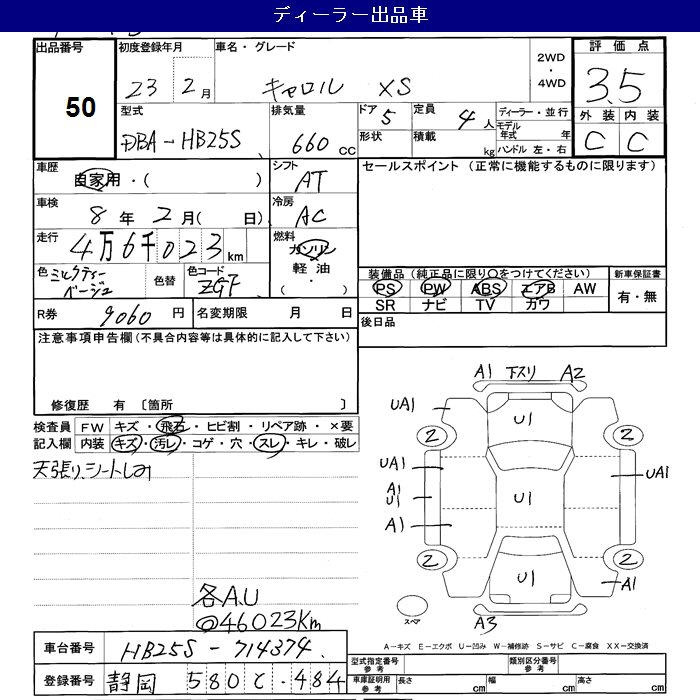 ディーラー出品車
出品番号
50
初度登録年月
23 2月
車名・グレード
キャロル XS
2WD・4WD
評価点
3.5
外装 内装
C C
型式
DBA-HB25S
排気量
660 cc
ドア 5
形状
定員 4 人
積載 kg
ディーラー・並行
モデル年式 年
ハンドル 左・右
車歴
自家用・( )
シフト
AT
車検
8年 2月( 日)
冷房
AC
走行
4万6千023 km
燃料
ガソリン
軽油
( ・ )
色 ミルクティーベージュ
色替
色コード
ZGF
R券 9060 円
名変期限 月 日
セールスポイント (正常に機能するものに限ります)
装備品(純正品に限り○をつけてください)
PS PW ABS エアB AW
SR ナビ TV カワ
新車保証書
有・無
後日品
注意事項申告欄(不具合内容等は具体的に記入して下さい)
修復歴 有 〔箇所 〕
検査員記入欄
FW キズ・飛石・ヒビ割・リペア跡・×要
内装 キズ・汚レ・コゲ・穴・スレ・キレ・破レ
天張り、シートしみ
各A.U
@46023Km
A1 下スリ A2
UA1 U1
2 2
UA1 UA1
A1
U1 U1
A1
2 2
U1 A1
スペア
A3
A-キズ E-エクボ U-凹み W-補修跡 S-サビ C-腐食 XX-交換済
車台番号 HB25S-714374
登録番号 静岡 580 て・484
型式指定番号 参考
類別区分番号 参考
車庫証明用 参考
長さ cm
幅 cm
高さ cm